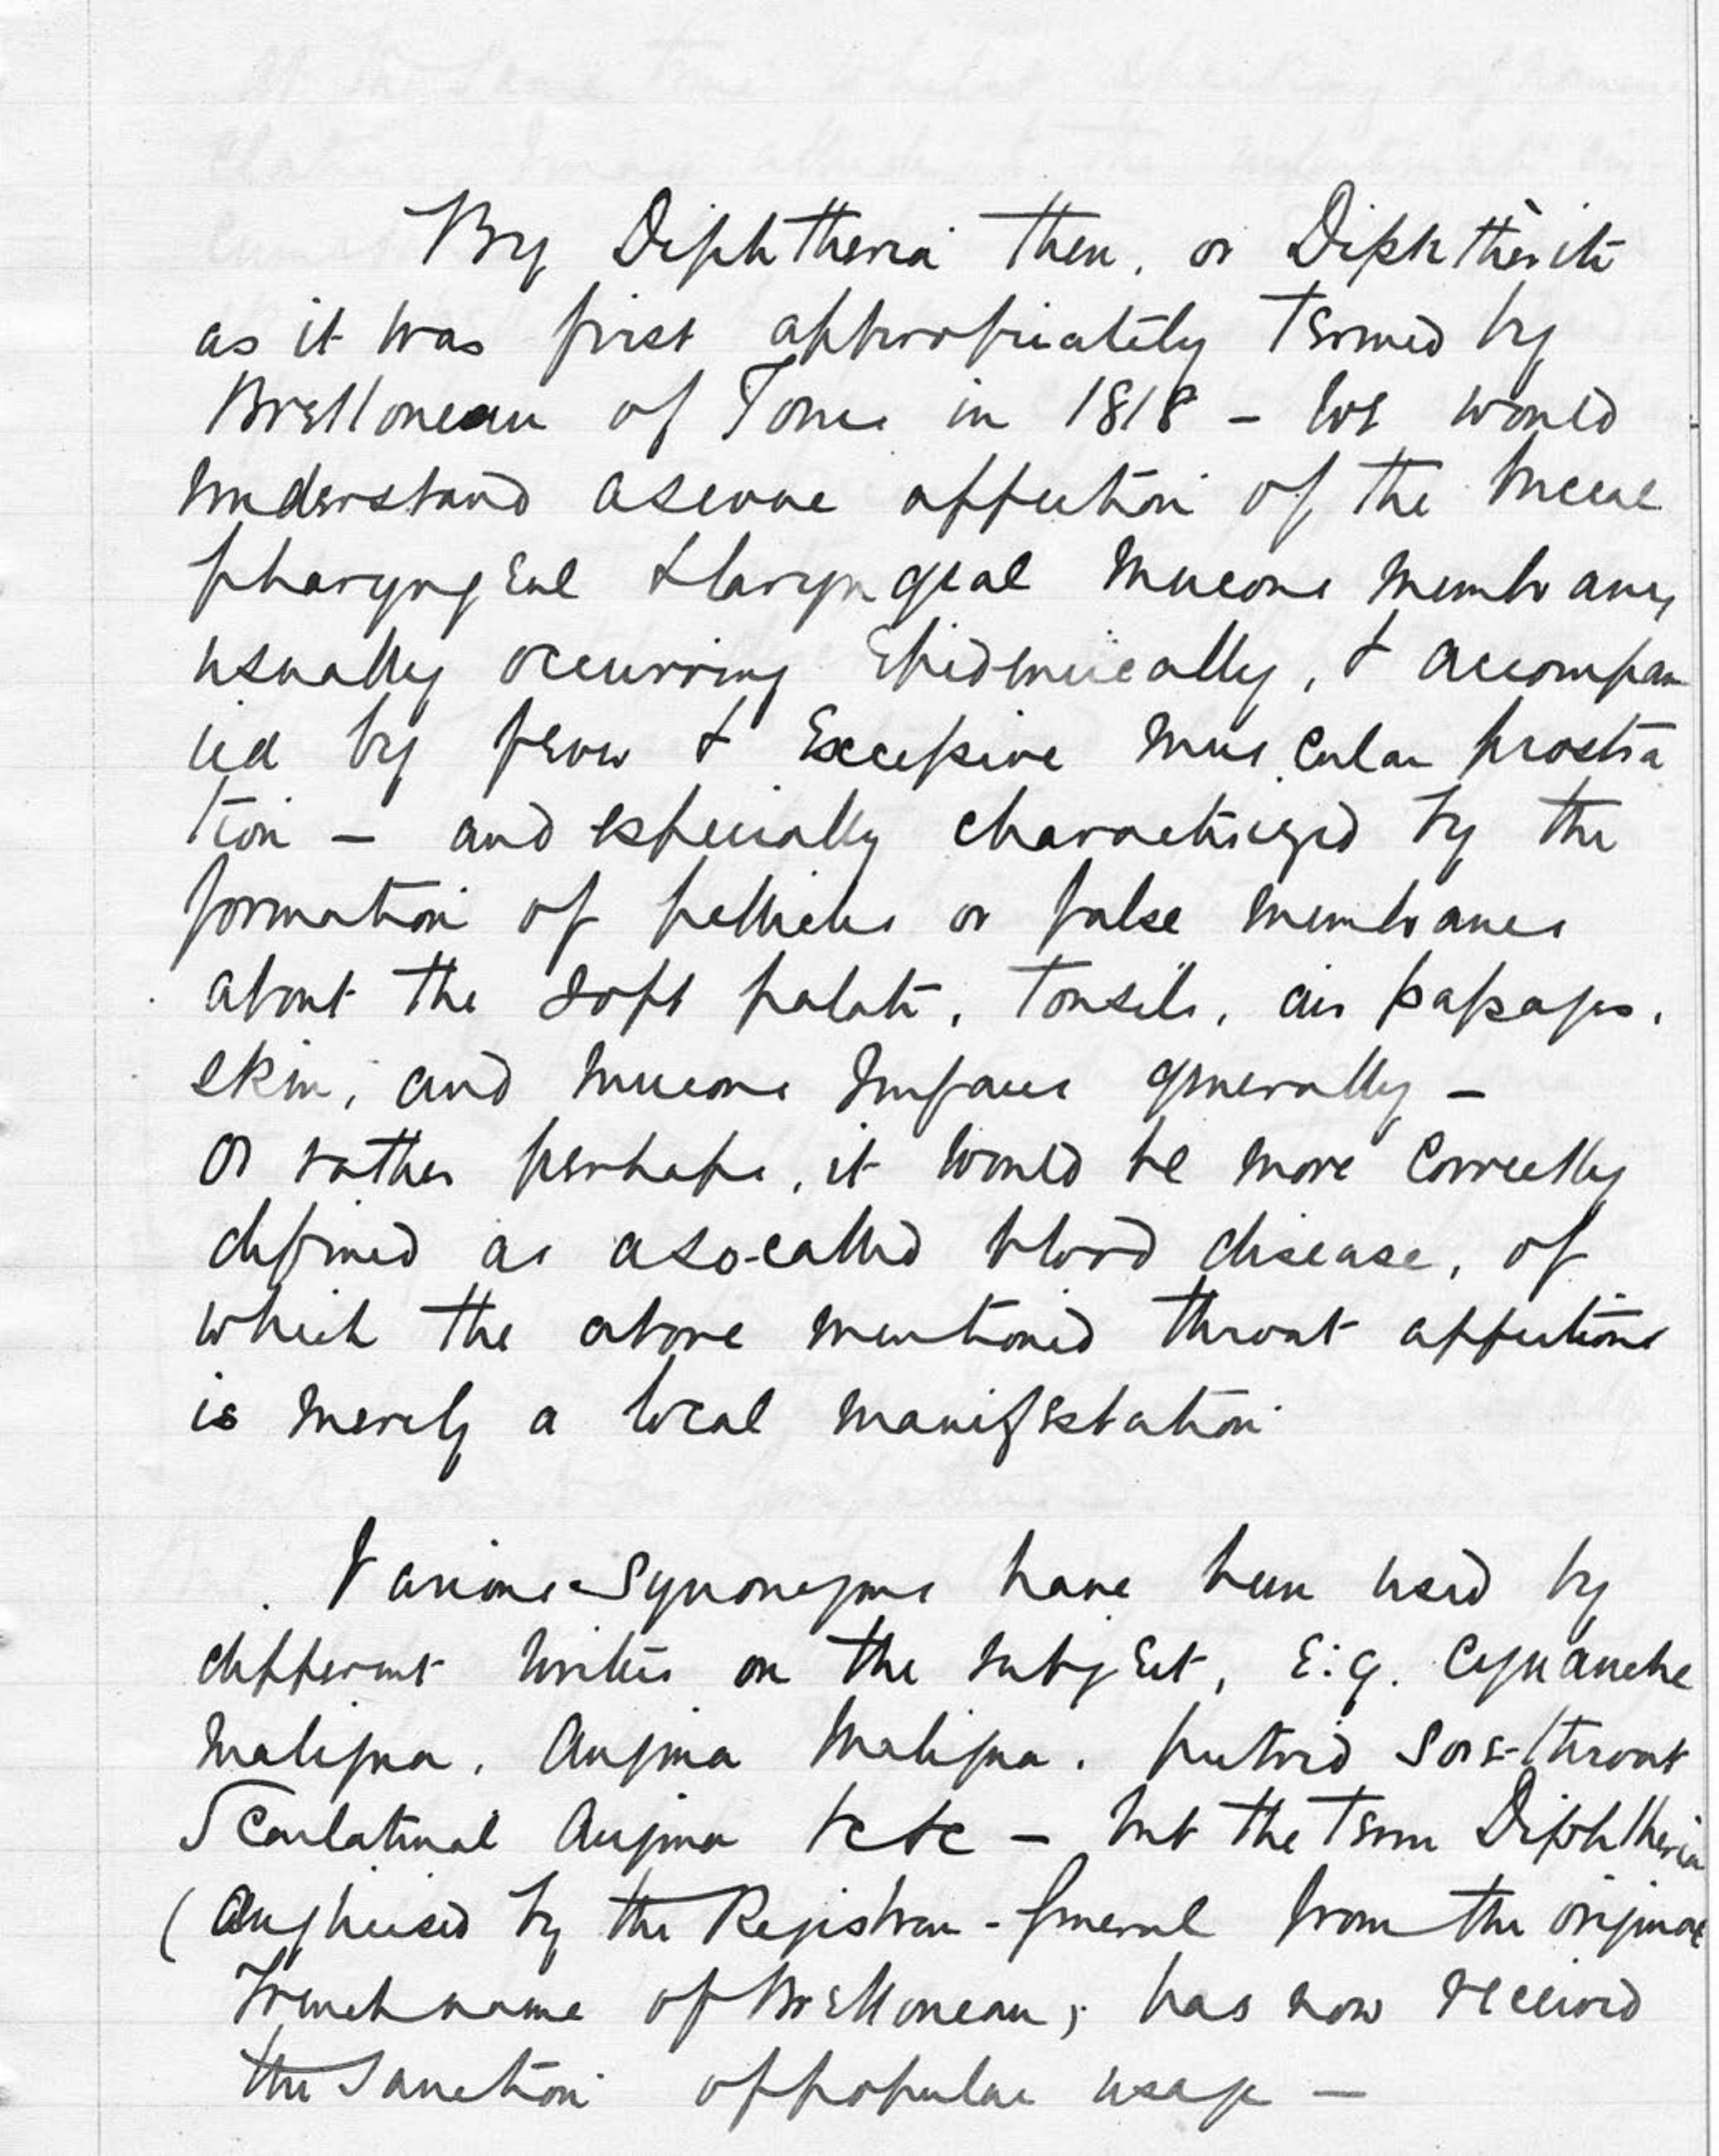 By Diphtheria then, or Diphthèrite
as it was first appropriately termed by
Bretonneau of Tours in 1818 - we would
understand a severe affection of the buccal
pharyngeal & laryngeal mucous membrane,
usually occurring epidemically, & accompan
ied by fever & excessive muscular prostra
tion - and especially characterized by the
formation of pellicles or false membranes
about the soft palate, tonsils, air passages,
skin, and mucous surfaces generally -
or rather perhaps, it would be more correctly
defined as a so-called blood disease, of
which the above mentioned throat affections
is merely a local manifestation
Various Synonyms have been used by
different writers on the subject, e.g. Cynanche
Maligna, Angina Maligna, putrid Sore-throat
Scarlatinal Angina &c &c - but the term Diphtheria
(Anglicised by the Registrar-General from the original
French name of Bretonneau, has now received
the Sanction of popular usage -